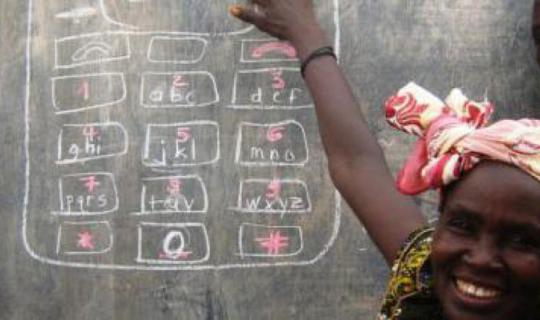 1 2 abc 3 def
4 ghi 5 jkl 6 mno
7 pqrs 8 tuv 9 wxyz
* 0 #